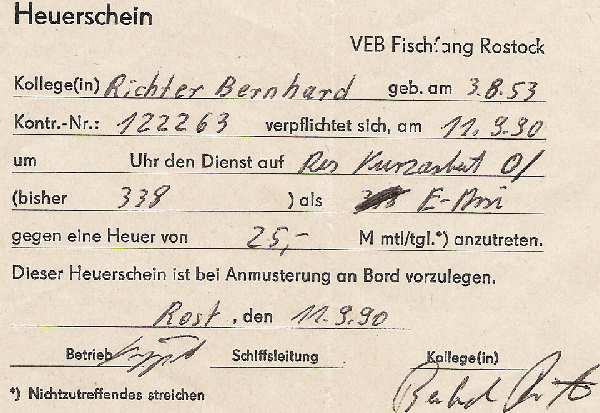 Heuerschein
VEB Fischfang Rostock
Kollege(in) Richter Bernhard geb. am 3.8.53
Kontr.-Nr.: 122263 verpflichtet sich, am 11.9.90
um Uhr den Dienst auf Res Kurzarbeit 0/
(bisher 338 ) als E-
gegen eine Heuer von 25,- M mtl/tgl.*) anzutreten.
Dieser Heuerschein ist bei Anmusterung an Bord vorzulegen.
Rost , den 11.9.90
Betrieb Schiffsleitung Kollege(in)
*) Nichtzutreffendes streichen